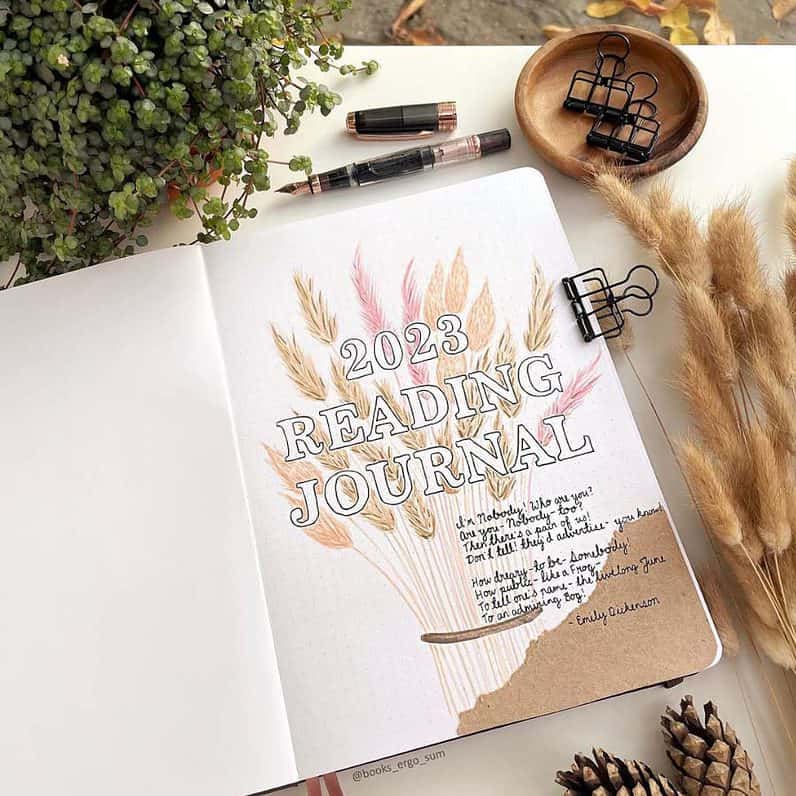 2023
READING
JOURNAL
I'm Nobody! Who are you?
Are you - Nobody - too?
Then there's a pair of us!
Don't tell! they'd advertise - you know!
How dreary - to be - Somebody!
How public - like a Frog -
To tell one's name - the livelong June
To an admiring Bog!
- Emily Dickenson
@books_ergo_sum